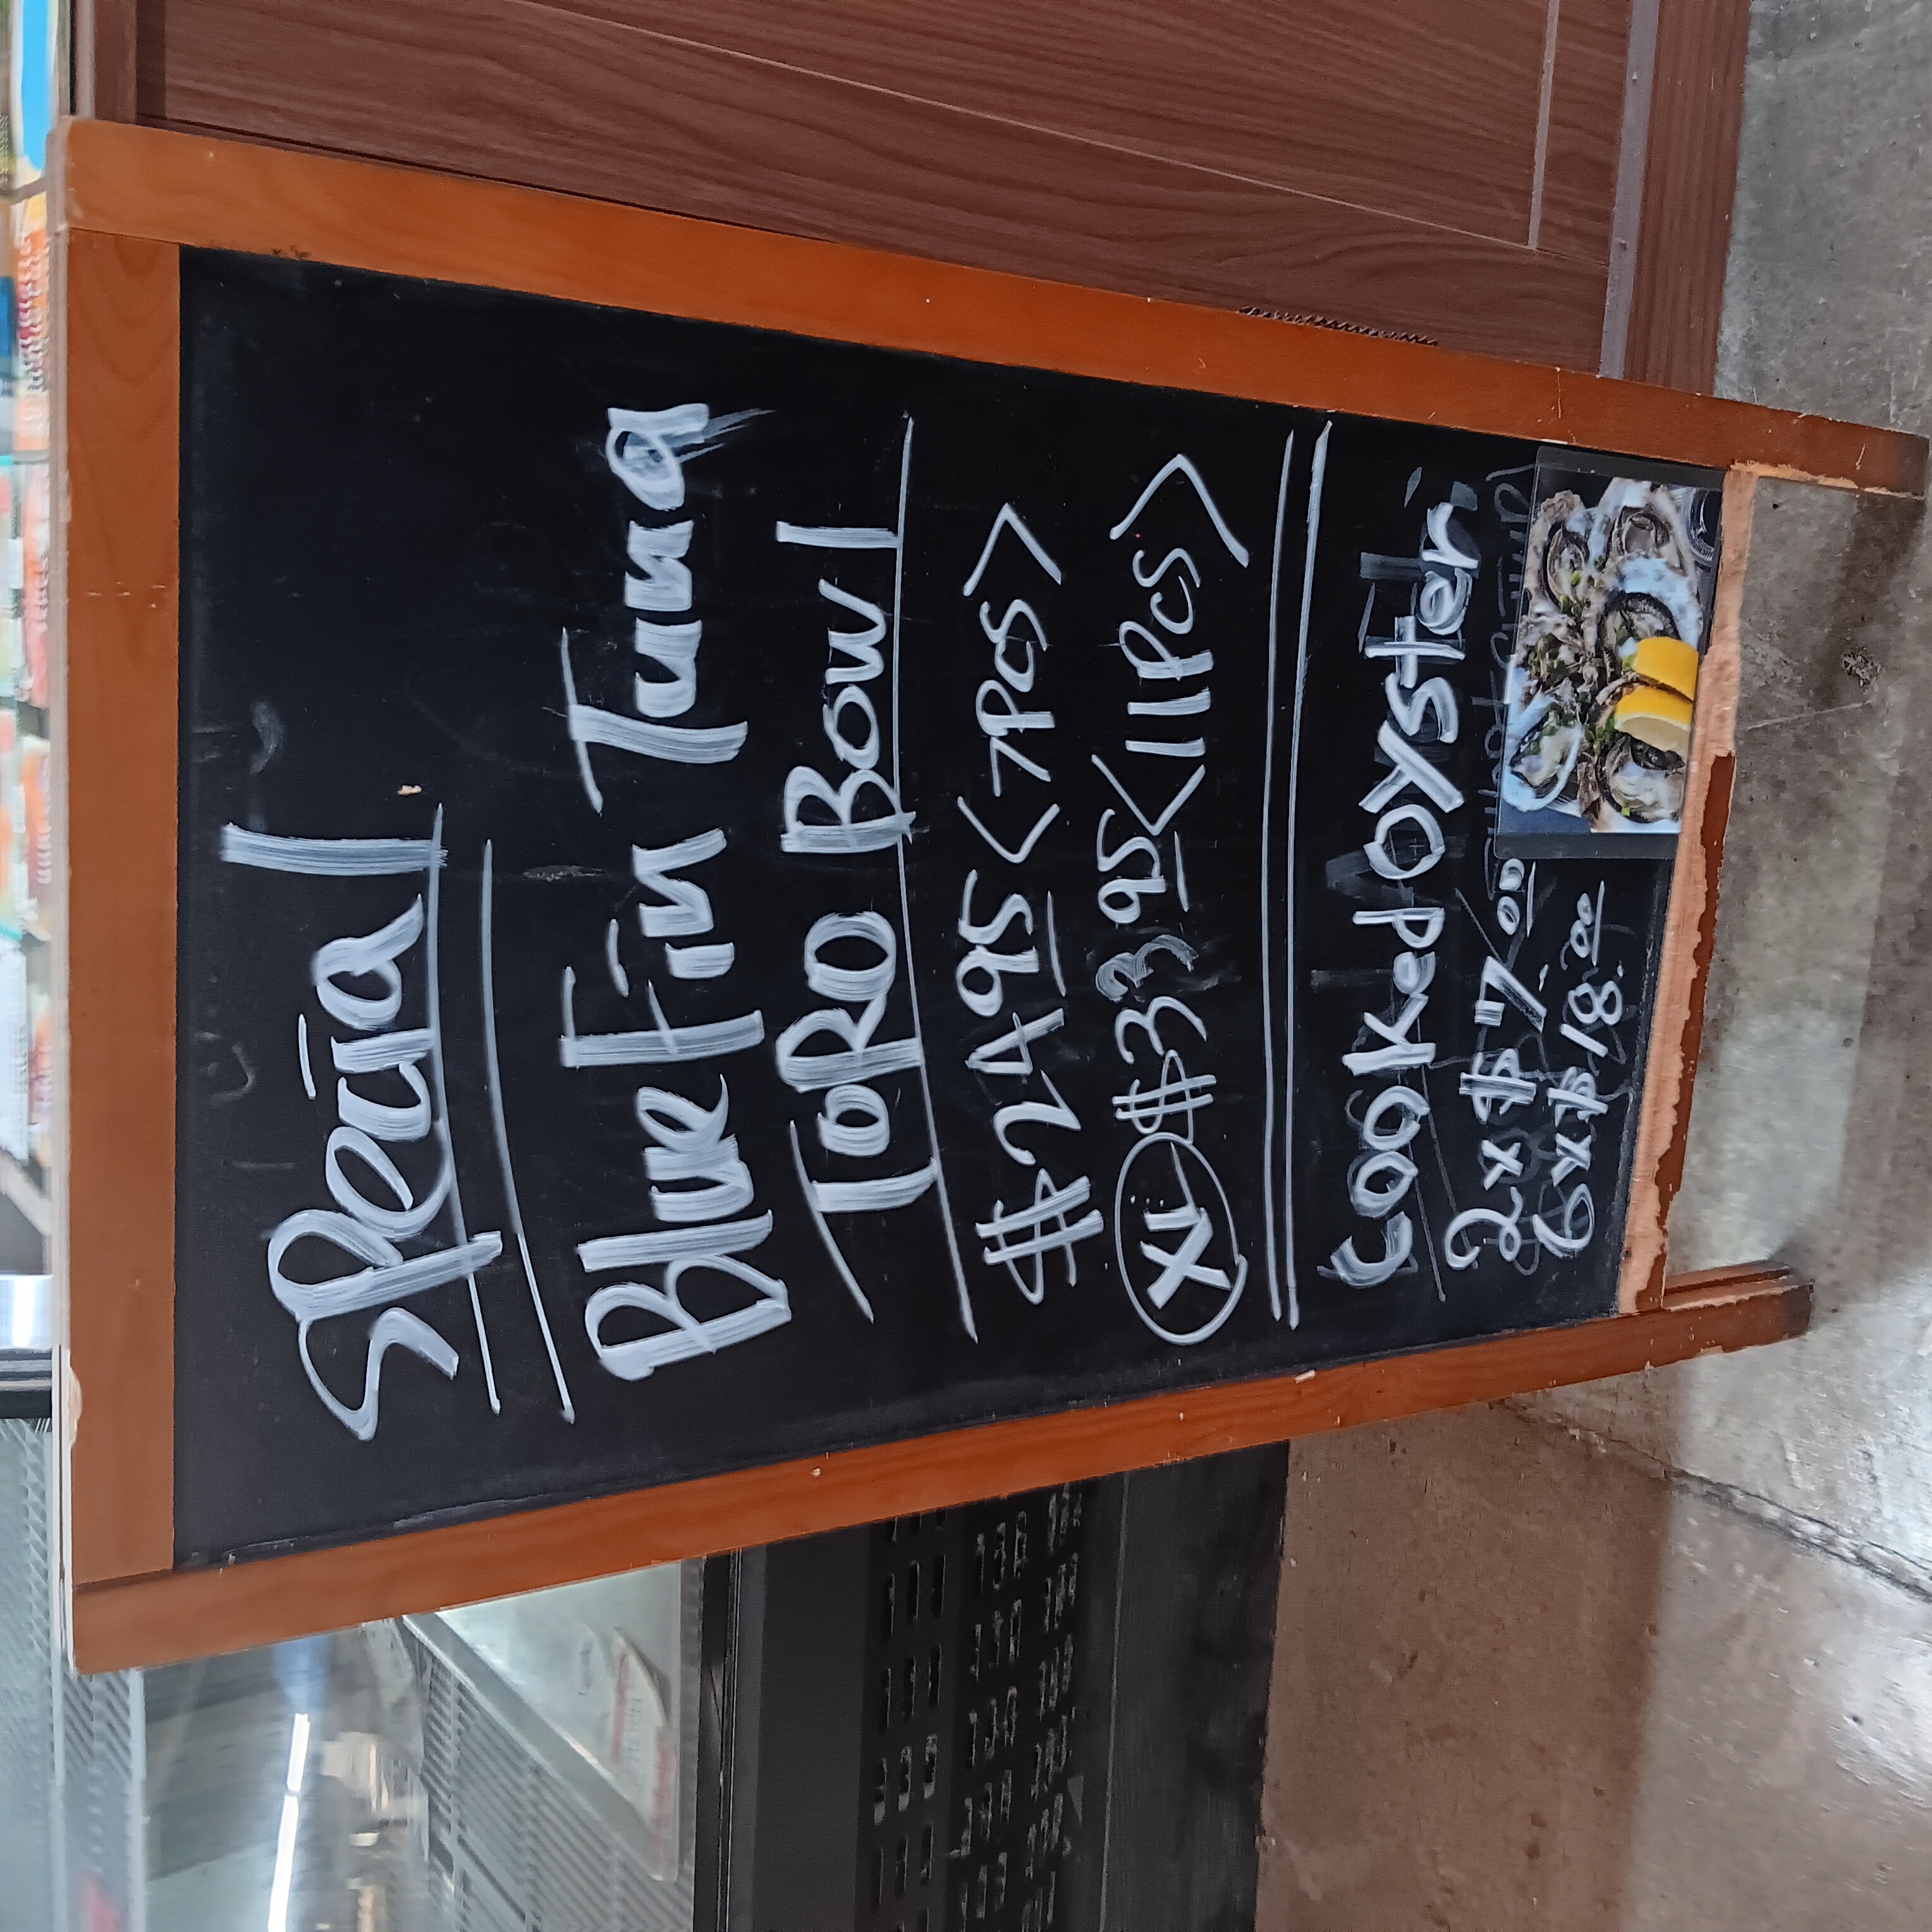 Special
BlueFin Tuna
ToRO Bowl
$24 95 <7PCS>
XL $33 95 <11PCS>
Cooked Oyster
2 x $7.00
6 x $18.00